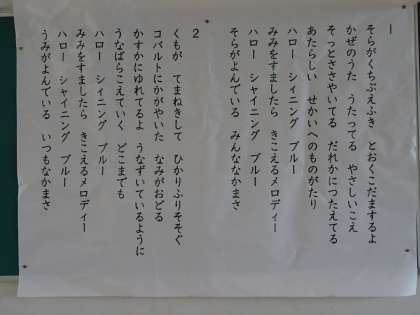 1
そらがくちぶえふき とおくこだまするよ
かぜのうた うたってる やさしいこえ
そっとささやいてる だれかにつたえてる
あたらしい せかいへのものがたり
ハロー シィニング ブルー
みみをすましたら きこえるメロディー
ハロー シャイニング ブルー
そらがよんでいる みんななかまさ
2
くもが てまねきして ひかりふりそそぐ
コバルトにかがやいた なみがおどる
かすかにゆれてるよ うなずいているように
うなばらこえていく どこまでも
ハロー シィニング ブルー
みみをすましたら きこえるメロディー
ハロー シャイニング ブルー
うみがよんでいる いつもなかまさ